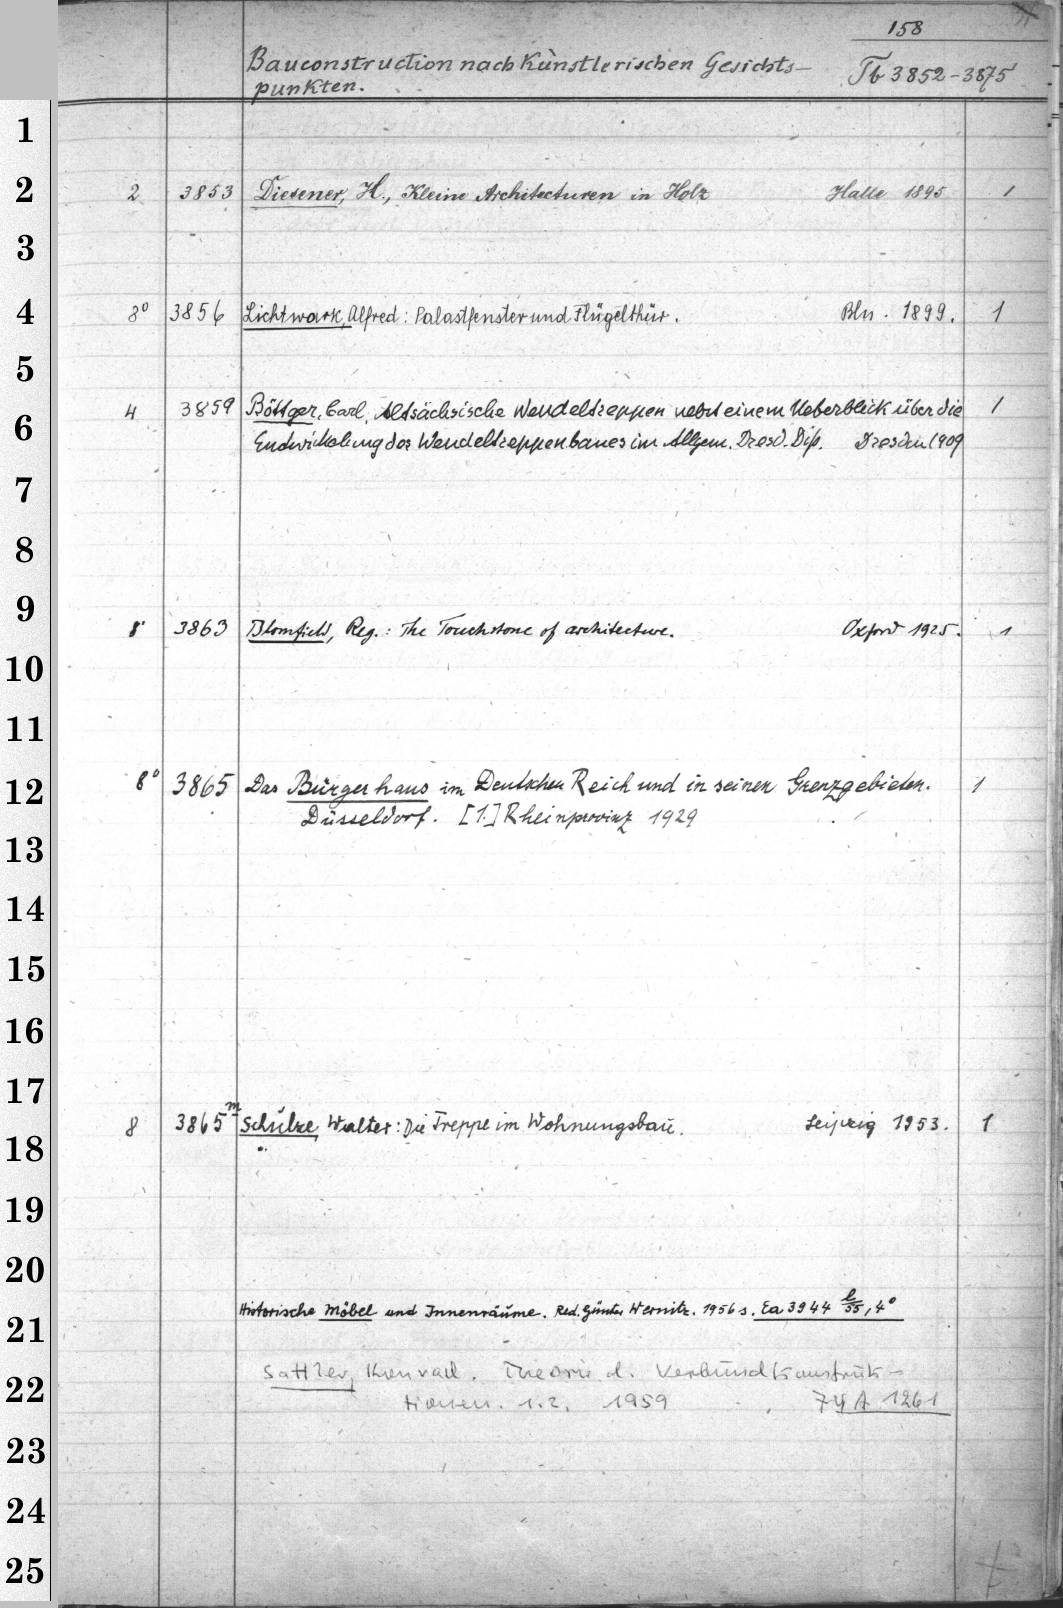 158
Bauconstruction nach Künstlerischen Gesichts-
punkten.
Tb 3852-3875
1
2 2 3853 Diesener, H., Kleine Architecturen in Holz Halle 1895 1
3
4 8° 3856 Lichtwark, Alfred: Palastfenster und Flügelthür. Bln. 1899. 1
5
4 3859 Böttger, Carl, Altsächsische Wendeltreppen nebst einem Ueberblick über die 1
6
Entwickelung des Wendeltreppenbaues im Allgem. Dresd. Diss. Dresden 1909
7
8
9 8° 3863 Blomfield, Reg.: The Touchstone of architecture. Oxford 1925. 1
10
11
12 8° 3865 Das Bürgerhaus im Deutschen Reich und in seinen Grenzgebieten. 1
Düsseldorf. [1.] Rheinprovinz 1929
13
14
15
16
17
8 3865m Schulze, Walter: Die Treppe im Wohnungsbau. Leipzig 1953. 1
18
19
20
Historische Möbel und Innenräume. Red. Günter Wernitz. 1956 s. Ea 3944 l/55, 4°
21
Sattler, Konrad. Theorie d. Verbundkonstruk-
22 tionen. 1.2. 1959 74 A 1261
23
24
25